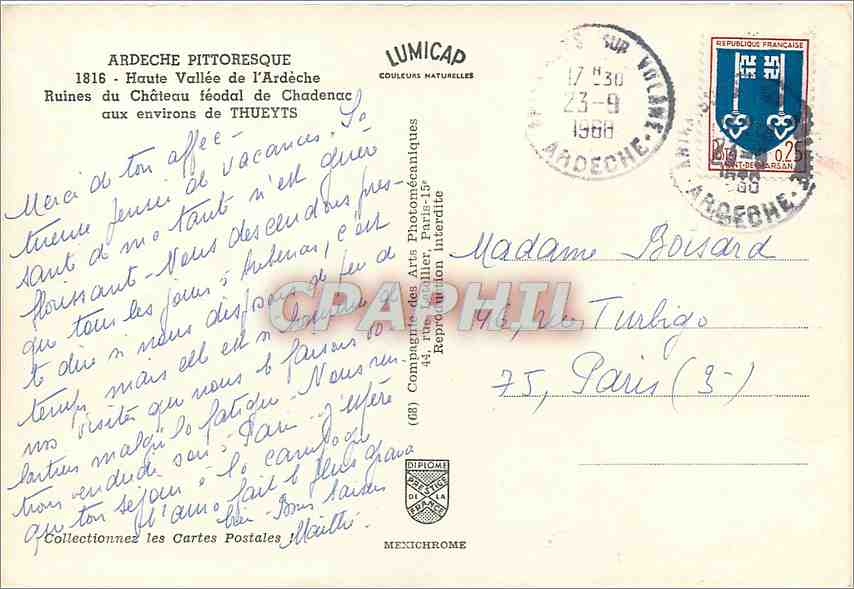 ARDECHE PITTORESQUE
1816 - Haute Vallée de l'Ardèche
Ruines du Château féodal de Chadenac
aux environs de THUEYTS
LUMICAP
COULEURS NATURELLES
SUR VOLANE
17 H 30
23-9
1968
ARDECHE
REPUBLIQUE FRANÇAISE
POSTES 0,25
MONT-DE-MARSAN
ARDECHE
Merci de ton affec-
tueuse pensée de vacances. La
santé de ma tante n'est guère
florissante - Nous descendons pres-
que tous les jours à Aubenas, c'est
te dire si nous disposons de peu de
temps, mais elle est si heureuse de
nos visites que nous le faisons vo-
lontiers malgré la fatigue - Nous ren-
trons vendredi soir à Paris - J'espère
que ton séjour à la campagne
t'aura fait le plus grand
bien - Bons baisers
Maïthé.
Collectionnez les Cartes Postales !
(68) Compagnie des Arts Photomécaniques
44, rue Letellier, Paris-15e
Reproduction Interdite
CPAPHIL
DIPLOME
PRESTIGE
DE LA
FRANCE
MEXICHROME
Madame Boisard
46, rue Turbigo
75, Paris (3e)